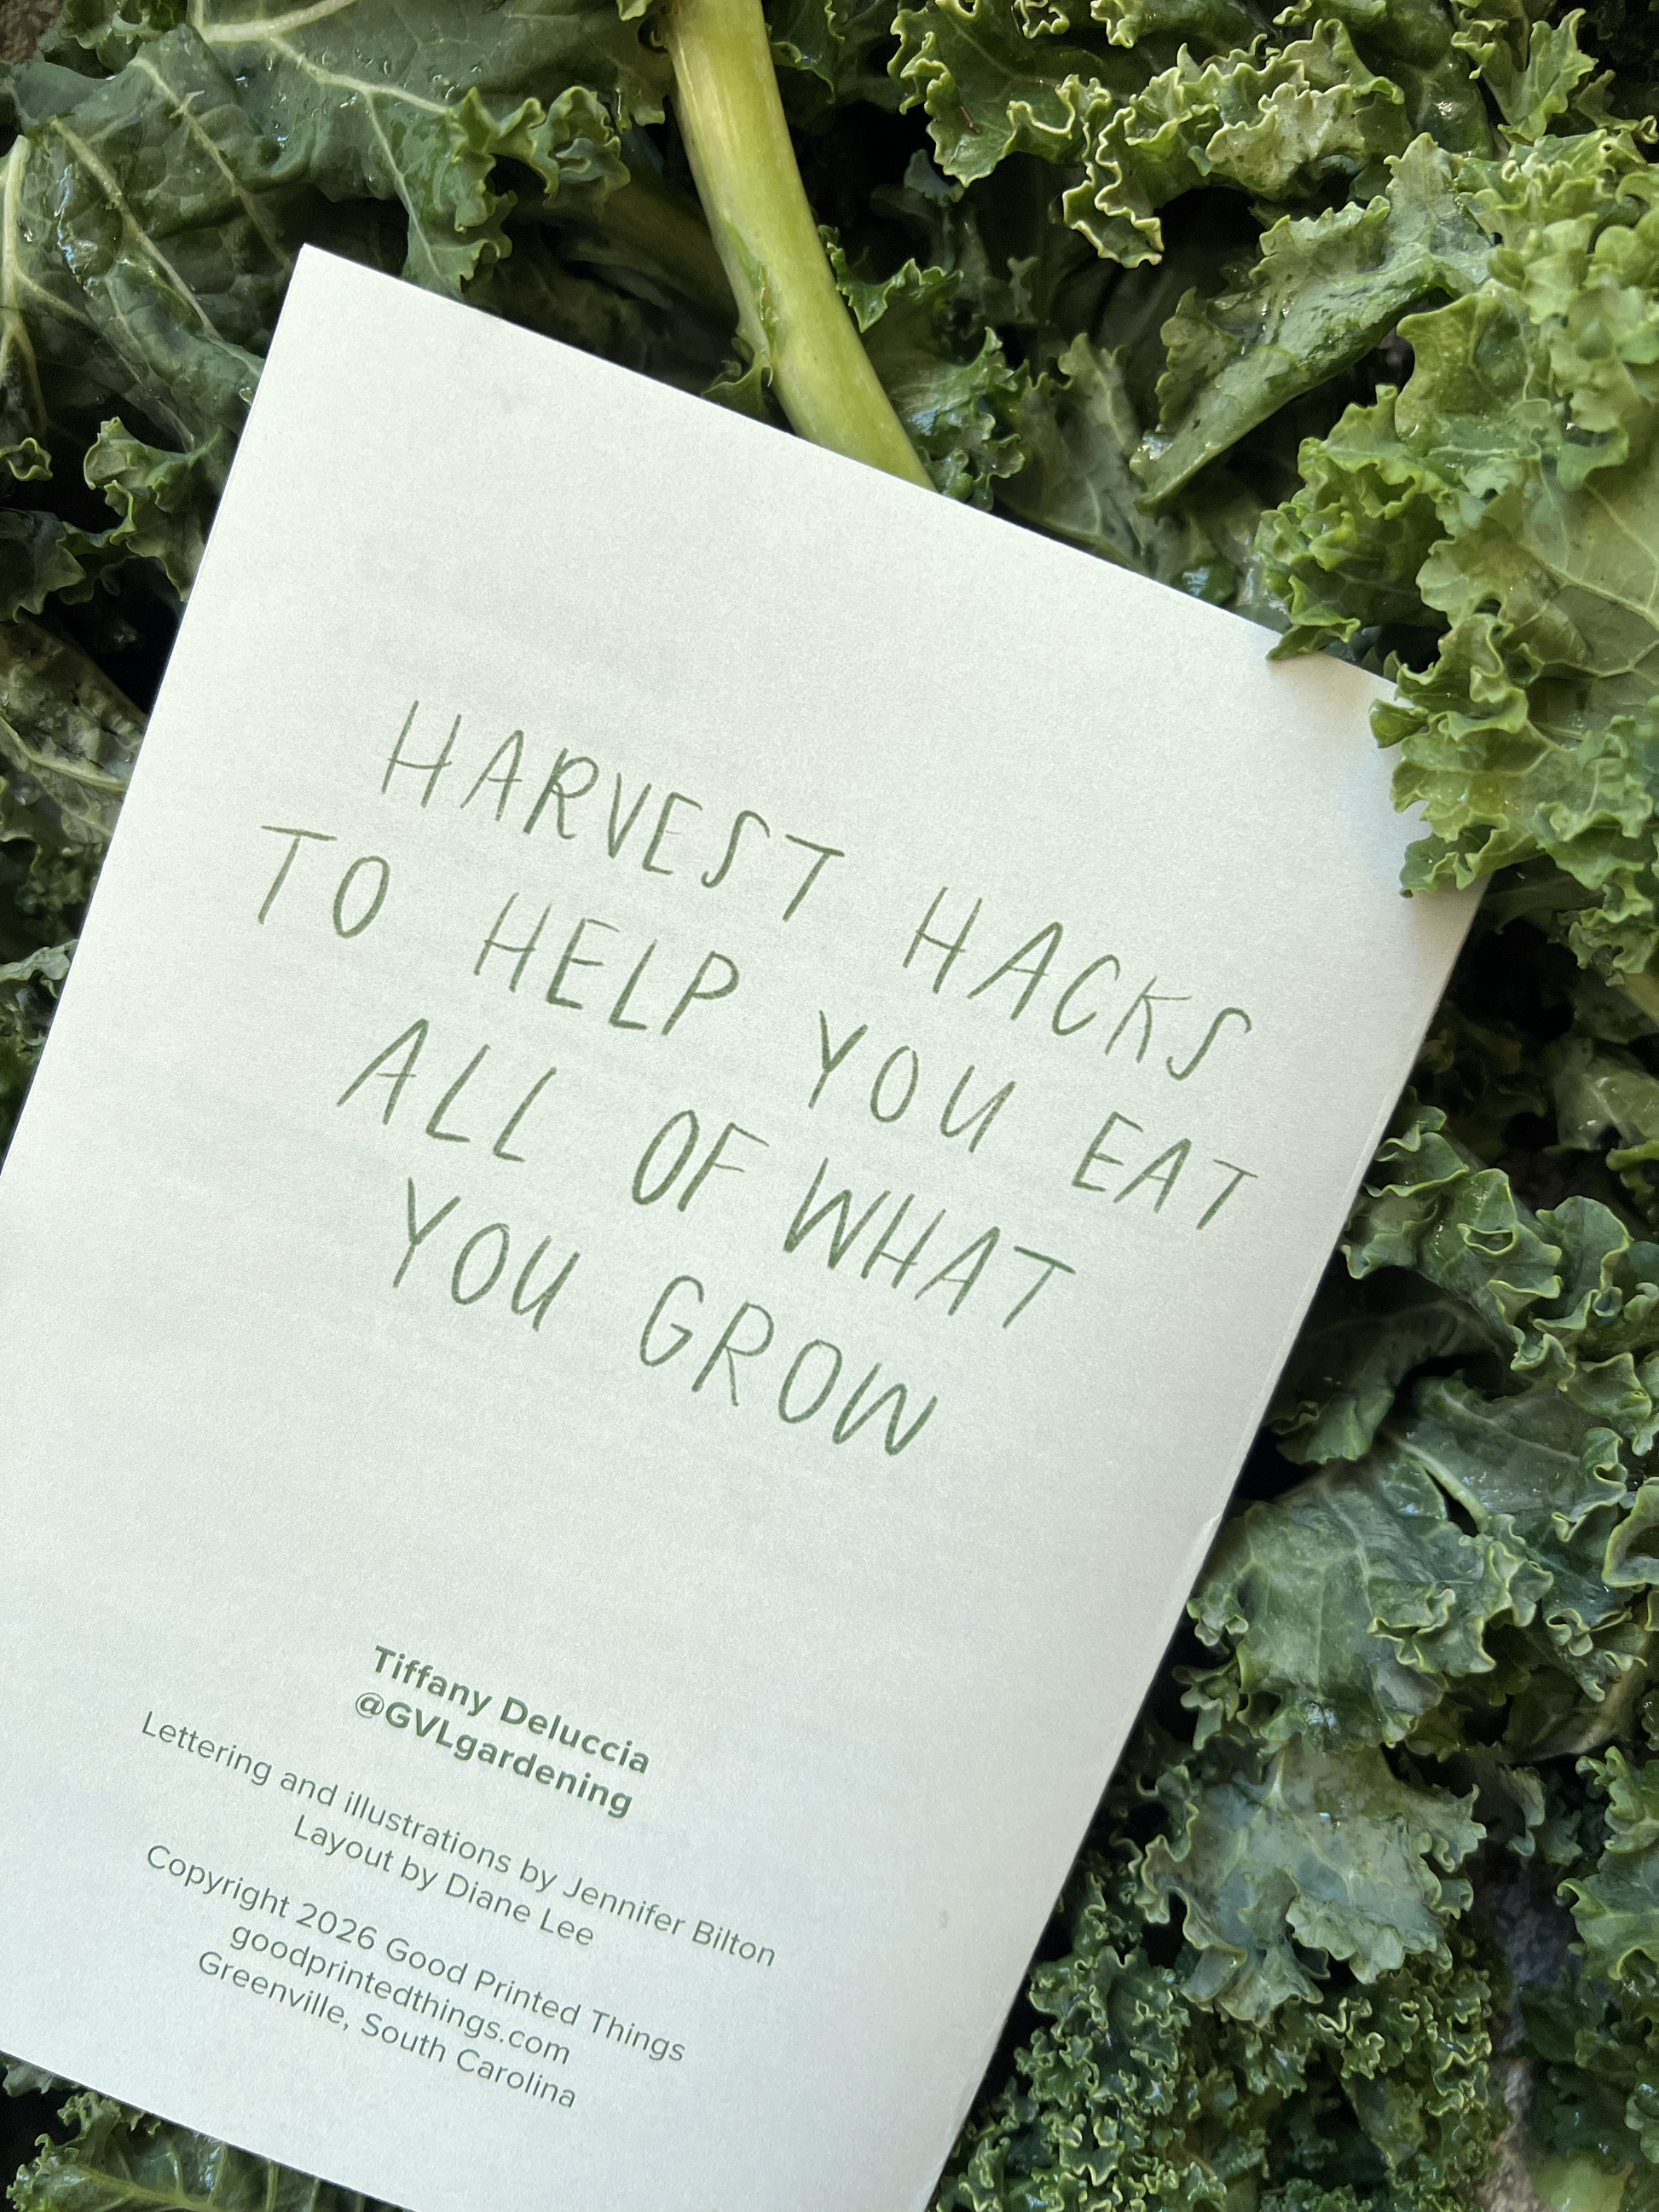 HARVEST HACKS
TO HELP YOU EAT
ALL OF WHAT
YOU GROW
Tiffany Deluccia
@GVLgardening
Lettering and illustrations by Jennifer Bilton
Layout by Diane Lee
Copyright 2026 Good Printed Things
goodprintedthings.com
Greenville, South Carolina